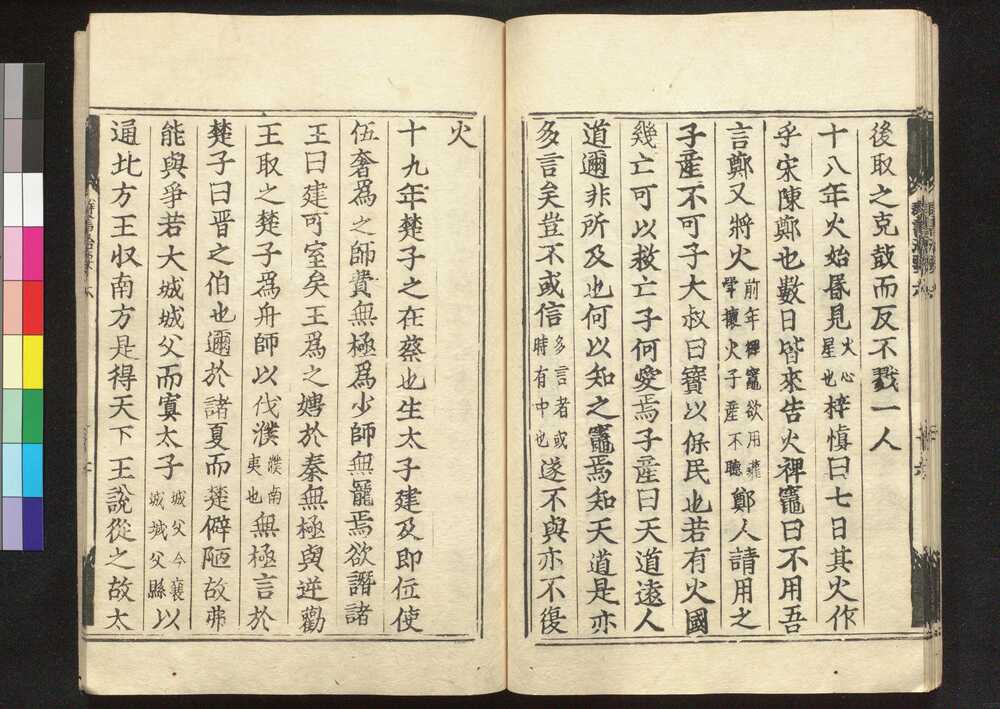 後取之克鼓而反不戮一人
十八年火始昬見火心星也梓愼曰七日其火作
乎宋陳鄭也數日皆來告火裨竈曰不用吾
言鄭又將火前年裨竈欲用瓘斝禳火子產不聽鄭人請用之
子產不可子大叔曰寶以保民也若有火國
幾亡可以救亡子何愛焉子產曰天道遠人
道邇非所及也何以知之竈焉知天道是亦
多言矣豈不或信多言者或時有中也遂不與亦不復
火
十九年楚子之在蔡也生太子建及即位使
伍奢爲之師費無極爲少師無寵焉欲譖諸
王曰建可室矣王爲之娉於秦無極與逆勸
王取之楚子爲舟師以伐濮濮南夷也無極言於
楚子曰晋之伯也邇於諸夏而楚僻陋故弗
能與爭若大城城父而寘太子城父今襄城城父縣以
通北方王収南方是得天下王說從之故太